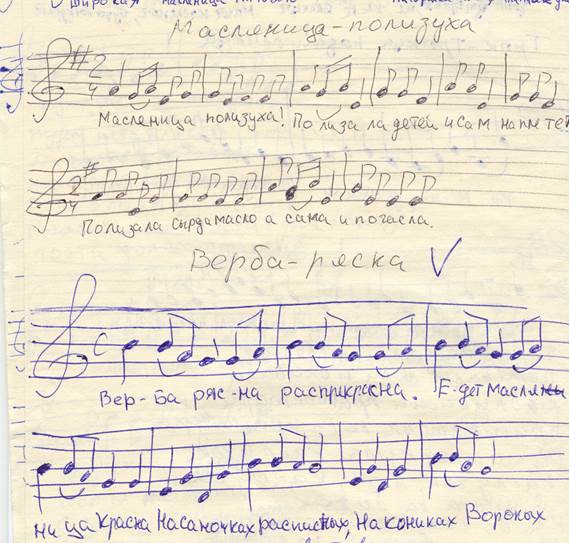 Широкая масленица
Масляница-полизуха
2
4
Масленица полизуха! Полизала детей и сам на плетет
2
4
Полизала сырда масло а сама и погасла.
Верба-ряска V
C
Вер-ба ряс-на расприкрасна. Е-дет масля
ница красна На саночках расписных, На кониках Вороных